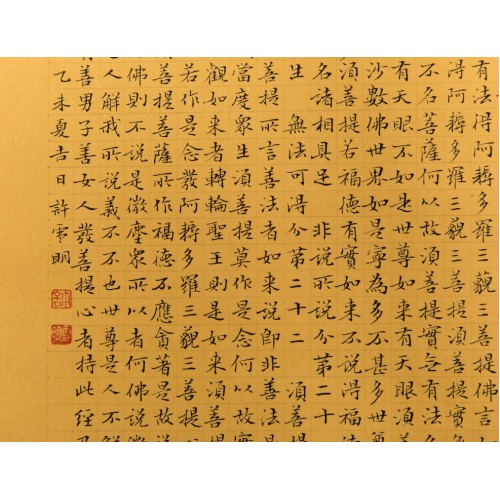 有法得阿耨多羅三藐三菩提佛言
得阿耨多羅三藐三菩提須菩提實
不名菩薩何以故須菩提實无有法名
有天眼不如是世尊如来有天眼須菩
沙數佛世界如是寧為多不甚多世尊
須菩提若福德有實如来不說得福
名諸相具足 非說所說分第二十
生 無法可得分第二十二 須菩提
善提所言善法者如来說即非善法
當度眾生須菩提莫作是念何以故
觀如来者轉輪聖王則是如来須菩
若作是念發阿耨多羅三藐三菩提
菩提菩薩所作福德不應貪著是故說
佛則不說是微塵眾所以者何佛說微
人解我所說義不不也世尊是人不解
有善男子善女人發菩提心者持此經
乙未夏吉日許明